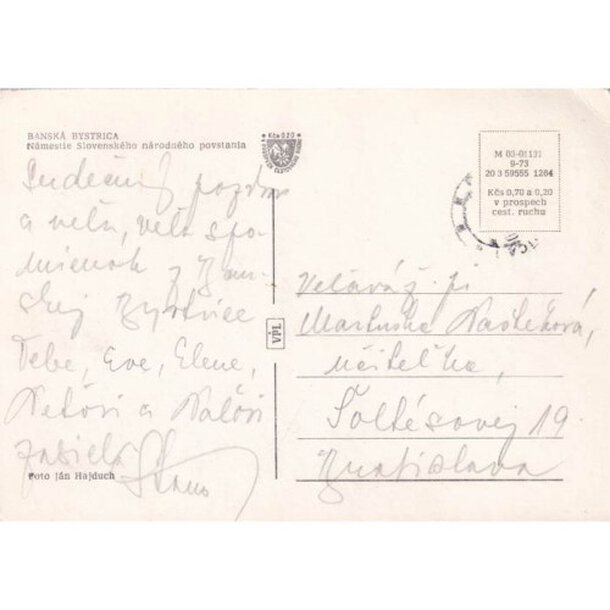 BANSKÁ BYSTRICA
Námestie Slovenského národného povstania
Kčs 0,20
Srdečný pozdrav
a veľa, veľa spo-
mienok z Ban-
skej Bystrice
Tebe, Eve, Elene,
a
zasiela
Foto Ján Hajduch
VPL
M 03-01131
9-73
20 3 59555 1264
Kčs 0,70 a 0,20
v prospech
cest. ruchu
Veľaváž. pí
Martuška
učiteľka,
Šoltésovej 19
Bratislava